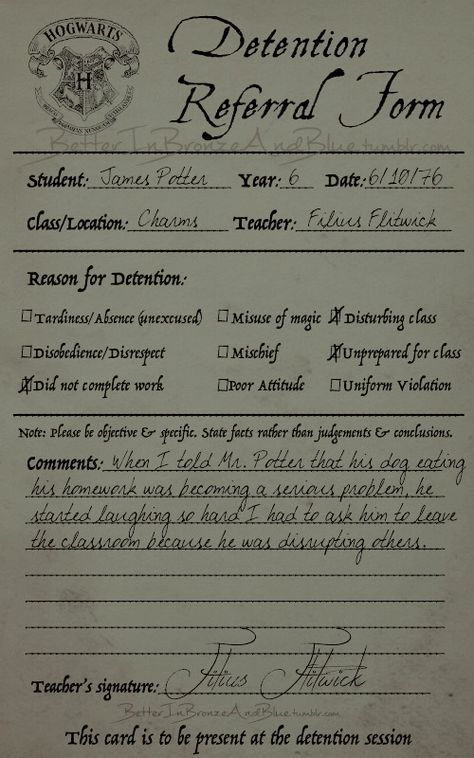 HOGWARTS
H
Detention
Referral Form
BetterInBronzeAndBlue.tumblr.com
Student: James Potter Year: 6 Date: 6/10/76
Class/Location: Charms Teacher: Filius Flitwick
Reason for Detention:
Tardiness/Absence (unexcused) Misuse of magic Disturbing class
Disobedience/Disrespect Mischief Unprepared for class
Did not complete work Poor Attitude Uniform Violation
Note: Please be objective & specific. State facts rather than judgements & conclusions.
Comments: When I told Mr. Potter that his dog eating
his homework was becoming a serious problem, he
started laughing so hard I had to ask him to leave
the classroom because he was disrupting others.
Teacher's signature: Filius Flitwick
BetterInBronzeAndBlue.tumblr.com
This card is to be present at the detention session